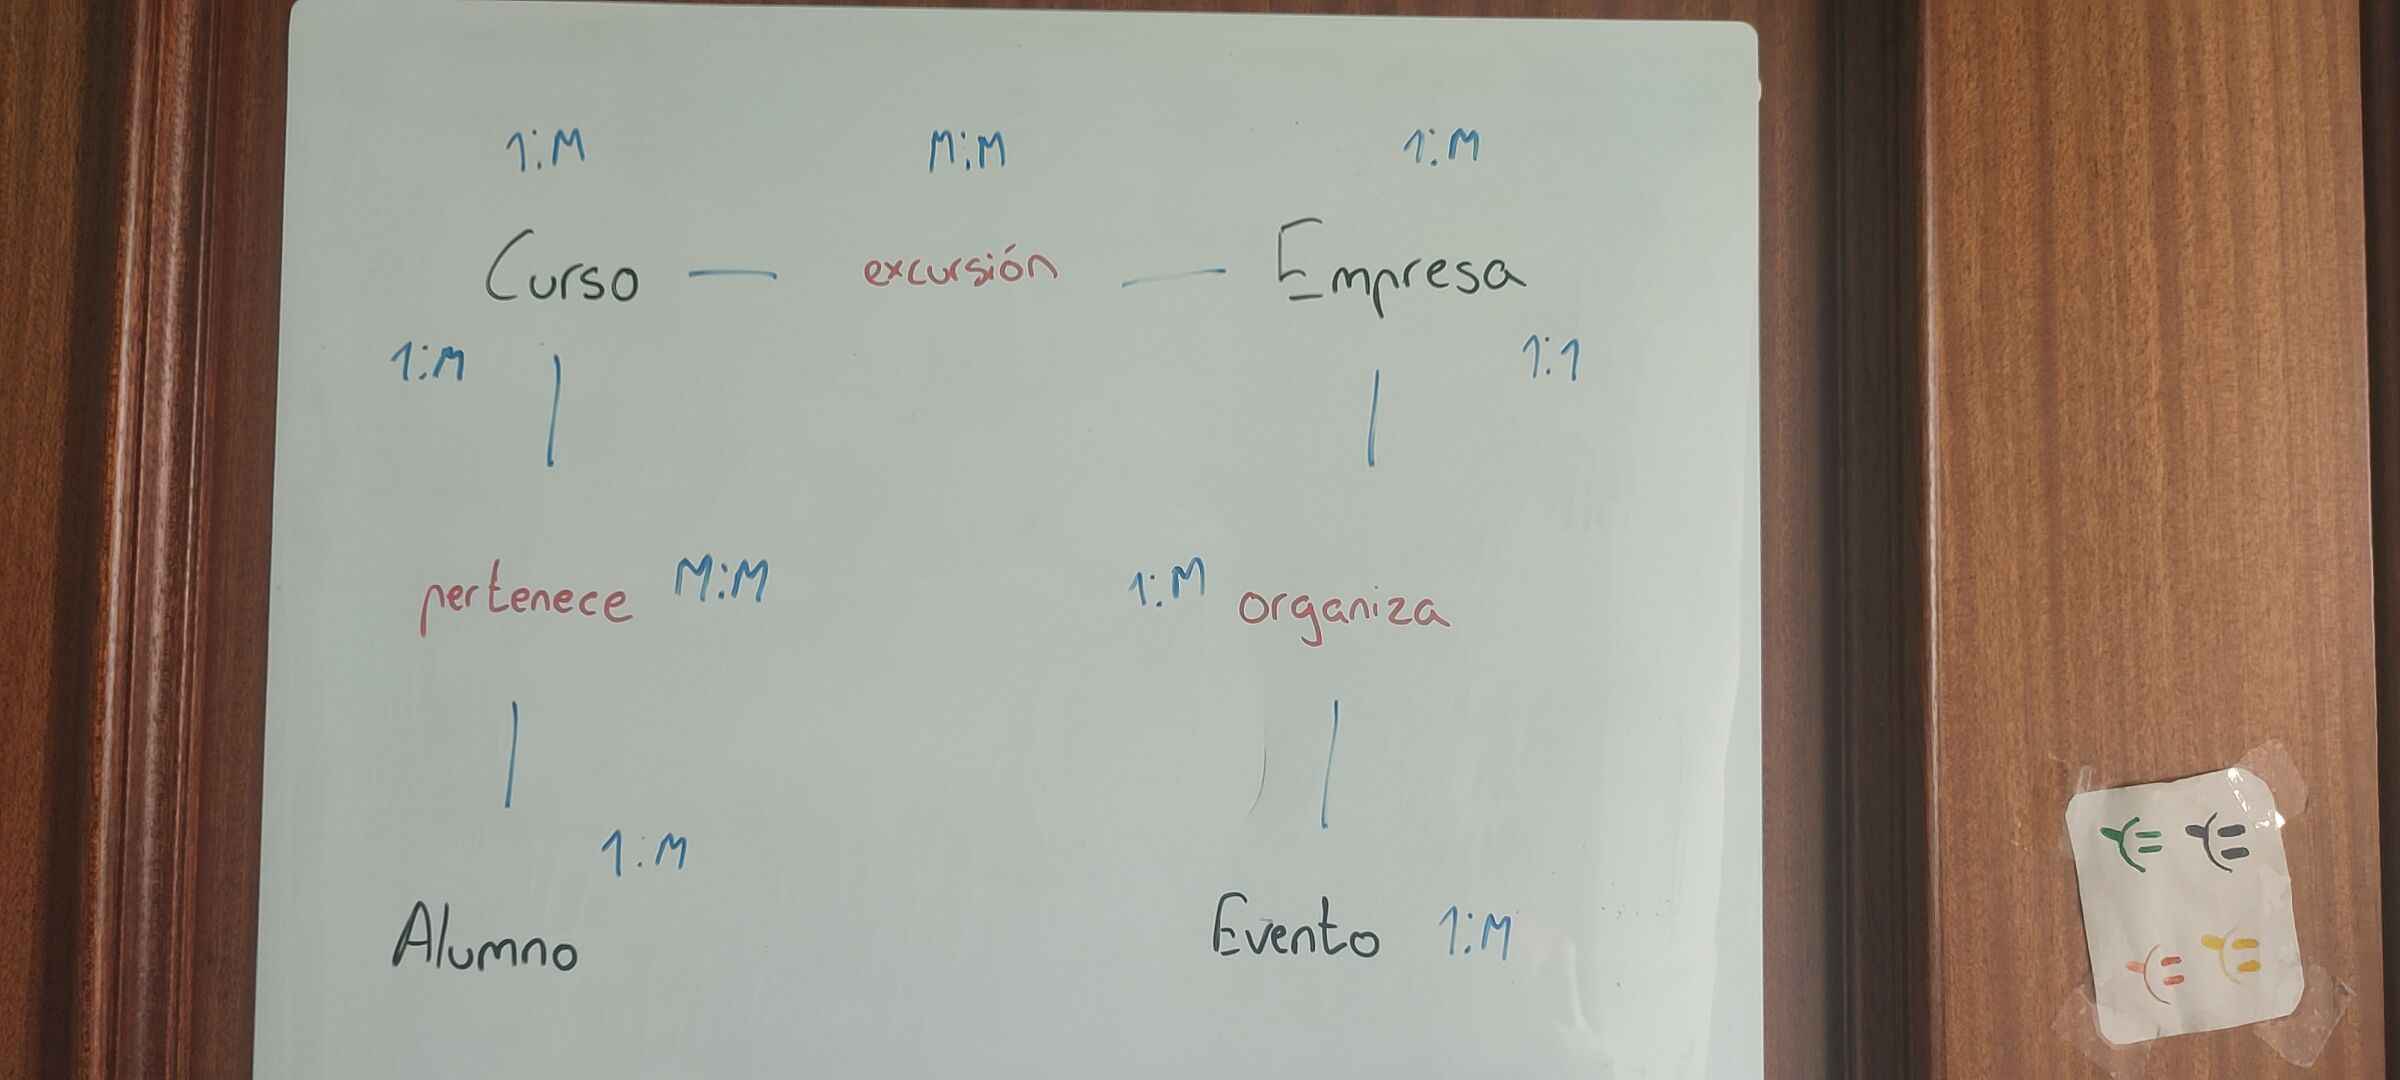 1:M M:M 1:M
Curso excursión Empresa
1:M 1:1
pertenece M:M 1:M organiza
1:M
Alumno Evento 1:M